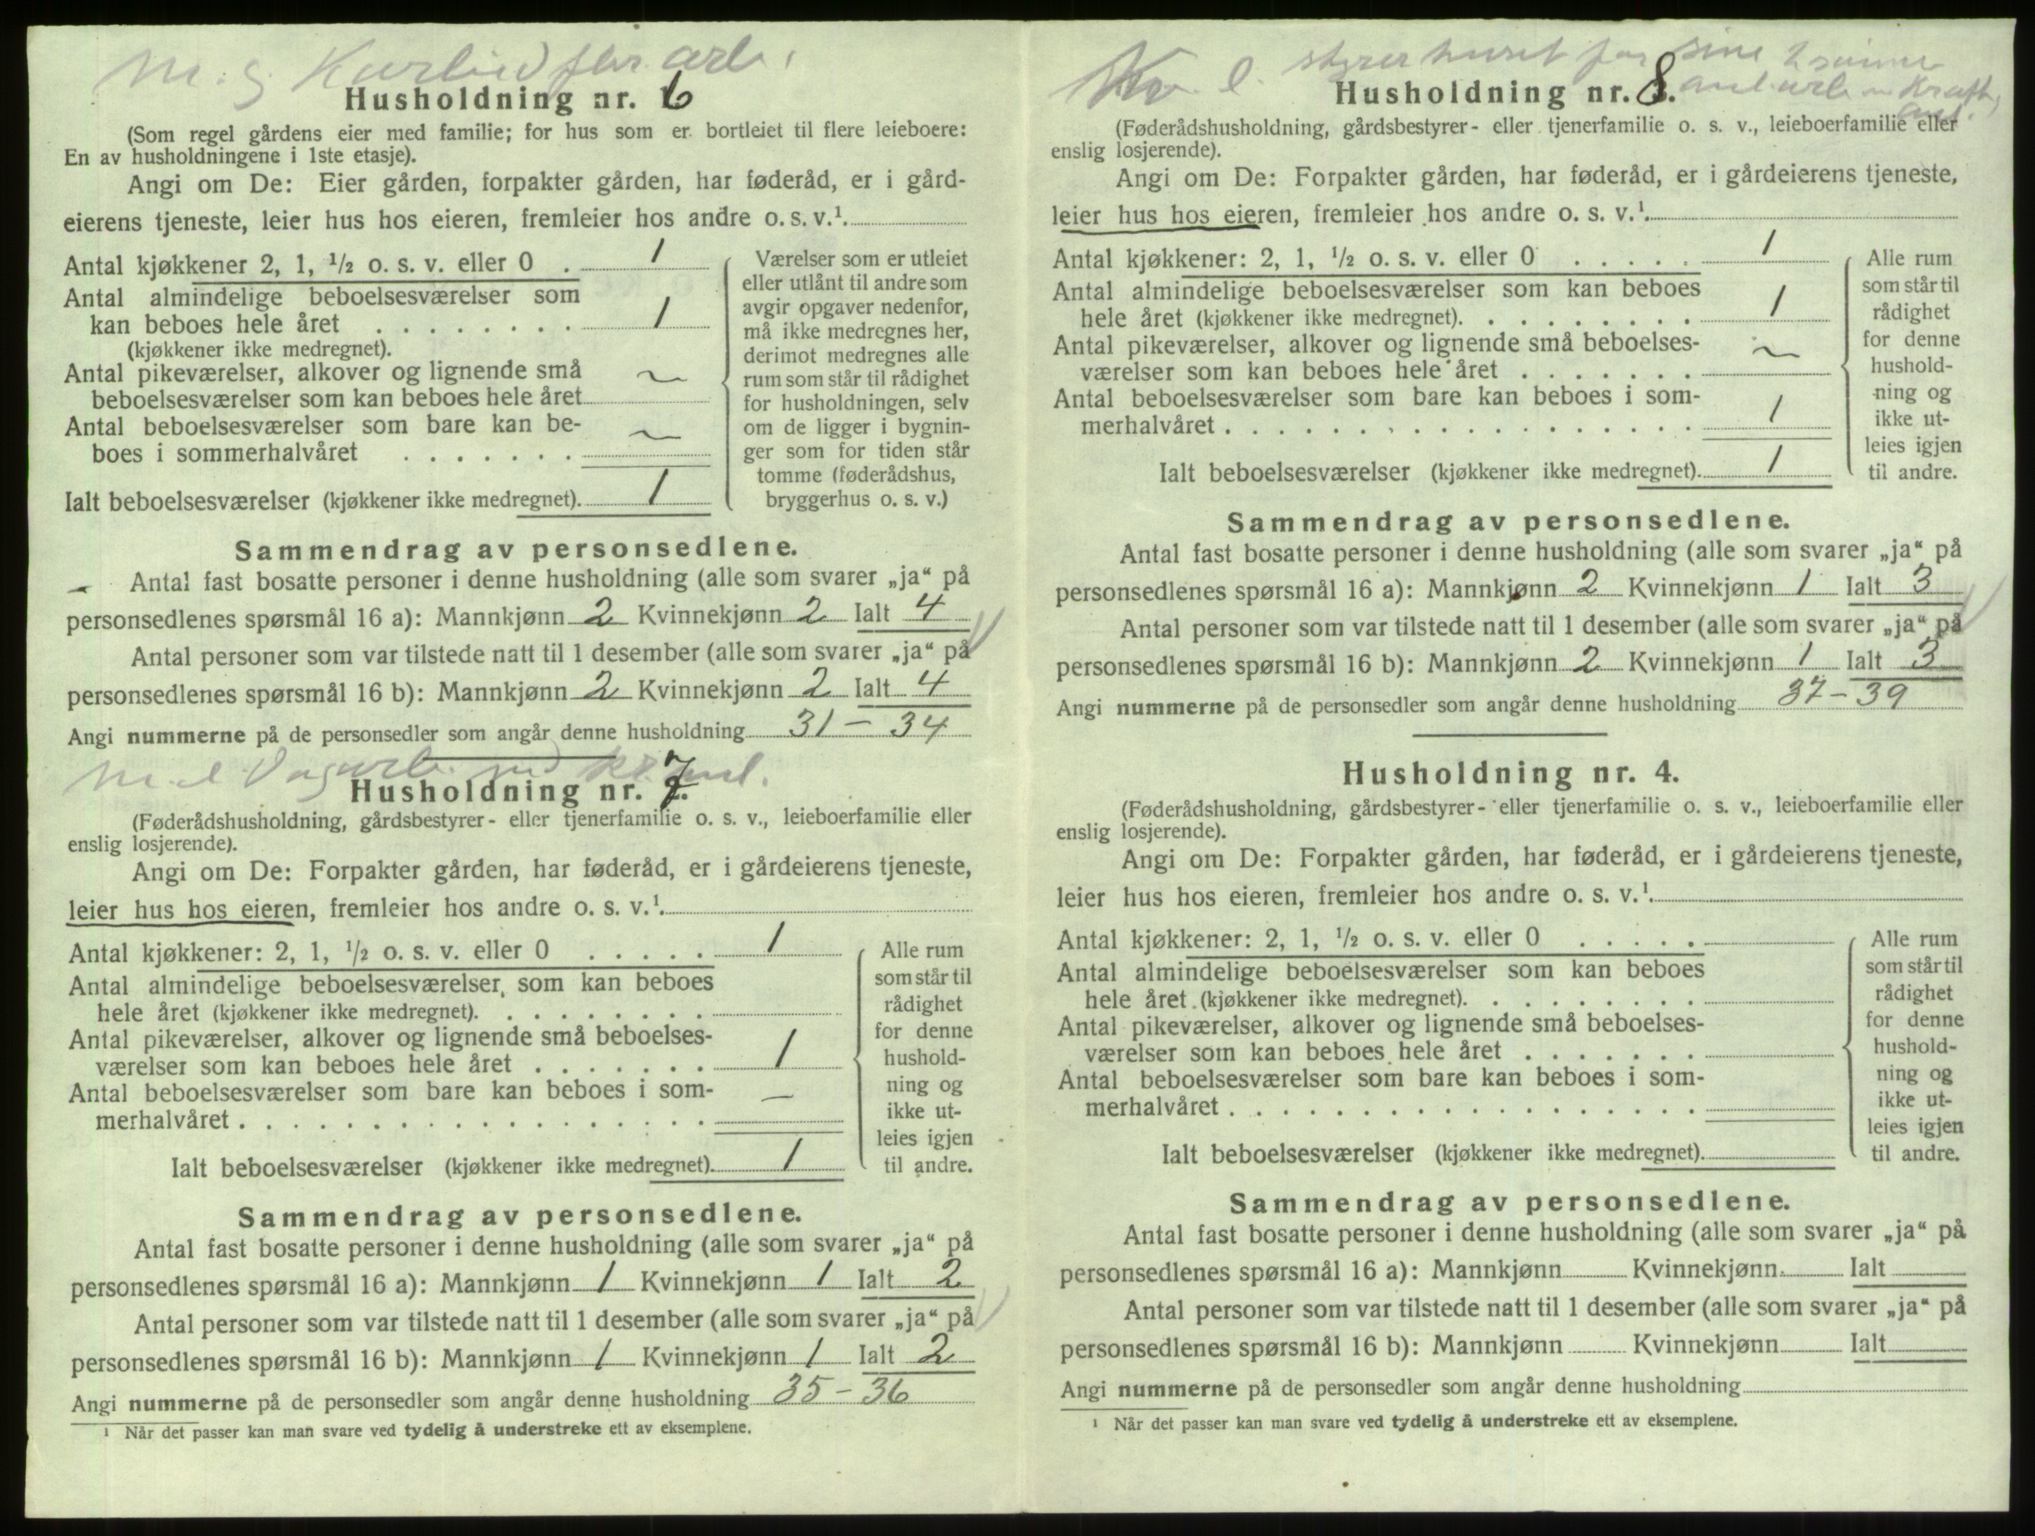 M. g.
Husholdning nr. 6
(Som regel gårdens eier med familie; for hus som er bortleiet til flere leieboere:
En av husholdningene i 1ste etasje).
Angi om De: Eier gården, forpakter gården, har føderåd, er i gård-
eierens tjeneste, leier hus hos eieren, fremleier hos andre o. s. v.¹
Antal kjøkkener 2, 1, ½ o. s. v. eller 0 . 1
Antal almindelige beboelsesværelser som
kan beboes hele året . . . . . . . . 1
(kjøkkener ikke medregnet).
Antal pikeværelser, alkover og lignende små ~
beboelsesværelser som kan beboes hele året
Antal beboelsesværelser som bare kan be- ~
boes i sommerhalvåret . . . . . . .
Ialt beboelsesværelser (kjøkkener ikke medregnet). 1
Værelser som er utleiet
eller utlånt til andre som
avgir opgaver nedenfor,
må ikke medregnes her,
derimot medregnes alle
rum som står til rådighet
for husholdningen, selv
om de ligger i bygnin-
ger som for tiden står
tomme (føderådshus,
bryggerhus o. s. v.)
Sammendrag av personsedlene.
Antal fast bosatte personer i denne husholdning (alle som svarer „ja“ på
personsedlenes spørsmål 16 a): Mannkjønn 2 Kvinnekjønn 2 Ialt 4
Antal personer som var tilstede natt til 1 desember (alle som svarer „ja“ på
personsedlenes spørsmål 16 b): Mannkjønn 2 Kvinnekjønn 2 Ialt 4
Angi nummerne på de personsedler som angår denne husholdning 31 - 34
M. l
Husholdning nr. 7.
(Føderådshusholdning, gårdsbestyrer- eller tjenerfamilie o. s. v., leieboerfamilie eller
enslig losjerende).
Angi om De: Forpakter gården, har føderåd, er i gårdeierens tjeneste,
leier hus hos eieren, fremleier hos andre o. s. v.¹
Antal kjøkkener: 2, 1, ½ o. s. v. eller 0 . . . . . 1
Antal almindelige beboelsesværelser som kan beboes
hele året (kjøkkener ikke medregnet). . . . . . . . .
Antal pikeværelser, alkover og lignende små beboelses-
værelser som kan beboes hele året . . . . . . . 1
Antal beboelsesværelser som bare kan beboes i som- –
merhalvåret . . . . . . . . . . . . . . . . . .
Ialt beboelsesværelser (kjøkkener ikke medregnet). 1
Alle rum
som står til
rådighet
for denne
hushold-
ning og
ikke ut-
leies igjen
til andre.
Sammendrag av personsedlene.
Antal fast bosatte personer i denne husholdning (alle som svarer „ja“ på
personsedlenes spørsmål 16 a): Mannkjønn 1 Kvinnekjønn 1 Ialt 2
Antal personer som var tilstede natt til 1 desember (alle som svarer „ja“ på
personsedlenes spørsmål 16 b): Mannkjønn 1 Kvinnekjønn 1 Ialt 2
Angi nummerne på de personsedler som angår denne husholdning 35 - 36
¹ Når det passer kan man svare ved tydelig å understreke ett av eksemplene.
l. styrer huset for sine 2 sønner
Husholdning nr. 8.
(Føderådshusholdning, gårdsbestyrer- eller tjenerfamilie o. s. v., leieboerfamilie eller
enslig losjerende).
Angi om De: Forpakter gården, har føderåd, er i gårdeierens tjeneste,
leier hus hos eieren, fremleier hos andre o. s. v.¹
Antal kjøkkener: 2, 1, ½ o. s. v. eller 0 . . . . . 1
Antal almindelige beboelsesværelser som kan beboes
hele året (kjøkkener ikke medregnet). . . . . . . . . 1
Antal pikeværelser, alkover og lignende små beboelses- ~
værelser som kan beboes hele året . . . . . . .
Antal beboelsesværelser som bare kan beboes i som-
merhalvåret . . . . . . . . . . . . . . . . . . 1
Ialt beboelsesværelser (kjøkkener ikke medregnet). 1
Alle rum
som står til
rådighet
for denne
hushold-
ning og
ikke ut-
leies igjen
til andre.
Sammendrag av personsedlene.
Antal fast bosatte personer i denne husholdning (alle som svarer „ja“ på
personsedlenes spørsmål 16 a): Mannkjønn 2 Kvinnekjønn 1 Ialt 3
Antal personer som var tilstede natt til 1 desember (alle som svarer „ja“ på
personsedlenes spørsmål 16 b): Mannkjønn 2 Kvinnekjønn 1 Ialt 3
Angi nummerne på de personsedler som angår denne husholdning 37 - 39
Husholdning nr. 4.
(Føderådshusholdning, gårdsbestyrer- eller tjenerfamilie o. s. v., leieboerfamilie eller
enslig losjerende).
Angi om De: Forpakter gården, har føderåd, er i gårdeierens tjeneste,
leier hus hos eieren, fremleier hos andre o. s. v.¹
Antal kjøkkener: 2, 1, ½ o. s. v. eller 0 . . . . .
Antal almindelige beboelsesværelser som kan beboes
hele året (kjøkkener ikke medregnet). . . . . . . . .
Antal pikeværelser, alkover og lignende små beboelses-
værelser som kan beboes hele året . . . . . . .
Antal beboelsesværelser som bare kan beboes i som-
merhalvåret . . . . . . . . . . . . . . . . . .
Ialt beboelsesværelser (kjøkkener ikke medregnet).
Alle rum
som står til
rådighet
for denne
hushold-
ning og
ikke ut-
leies igjen
til andre.
Sammendrag av personsedlene.
Antal fast bosatte personer i denne husholdning (alle som svarer „ja“ på
personsedlenes spørsmål 16 a): Mannkjønn Kvinnekjønn Ialt
Antal personer som var tilstede natt til 1 desember (alle som svarer „ja“ på
personsedlenes spørsmål 16 b): Mannkjønn Kvinnekjønn Ialt
Angi nummerne på de personsedler som angår denne husholdning
¹ Når det passer kan man svare ved tydelig å understreke ett av eksemplene.